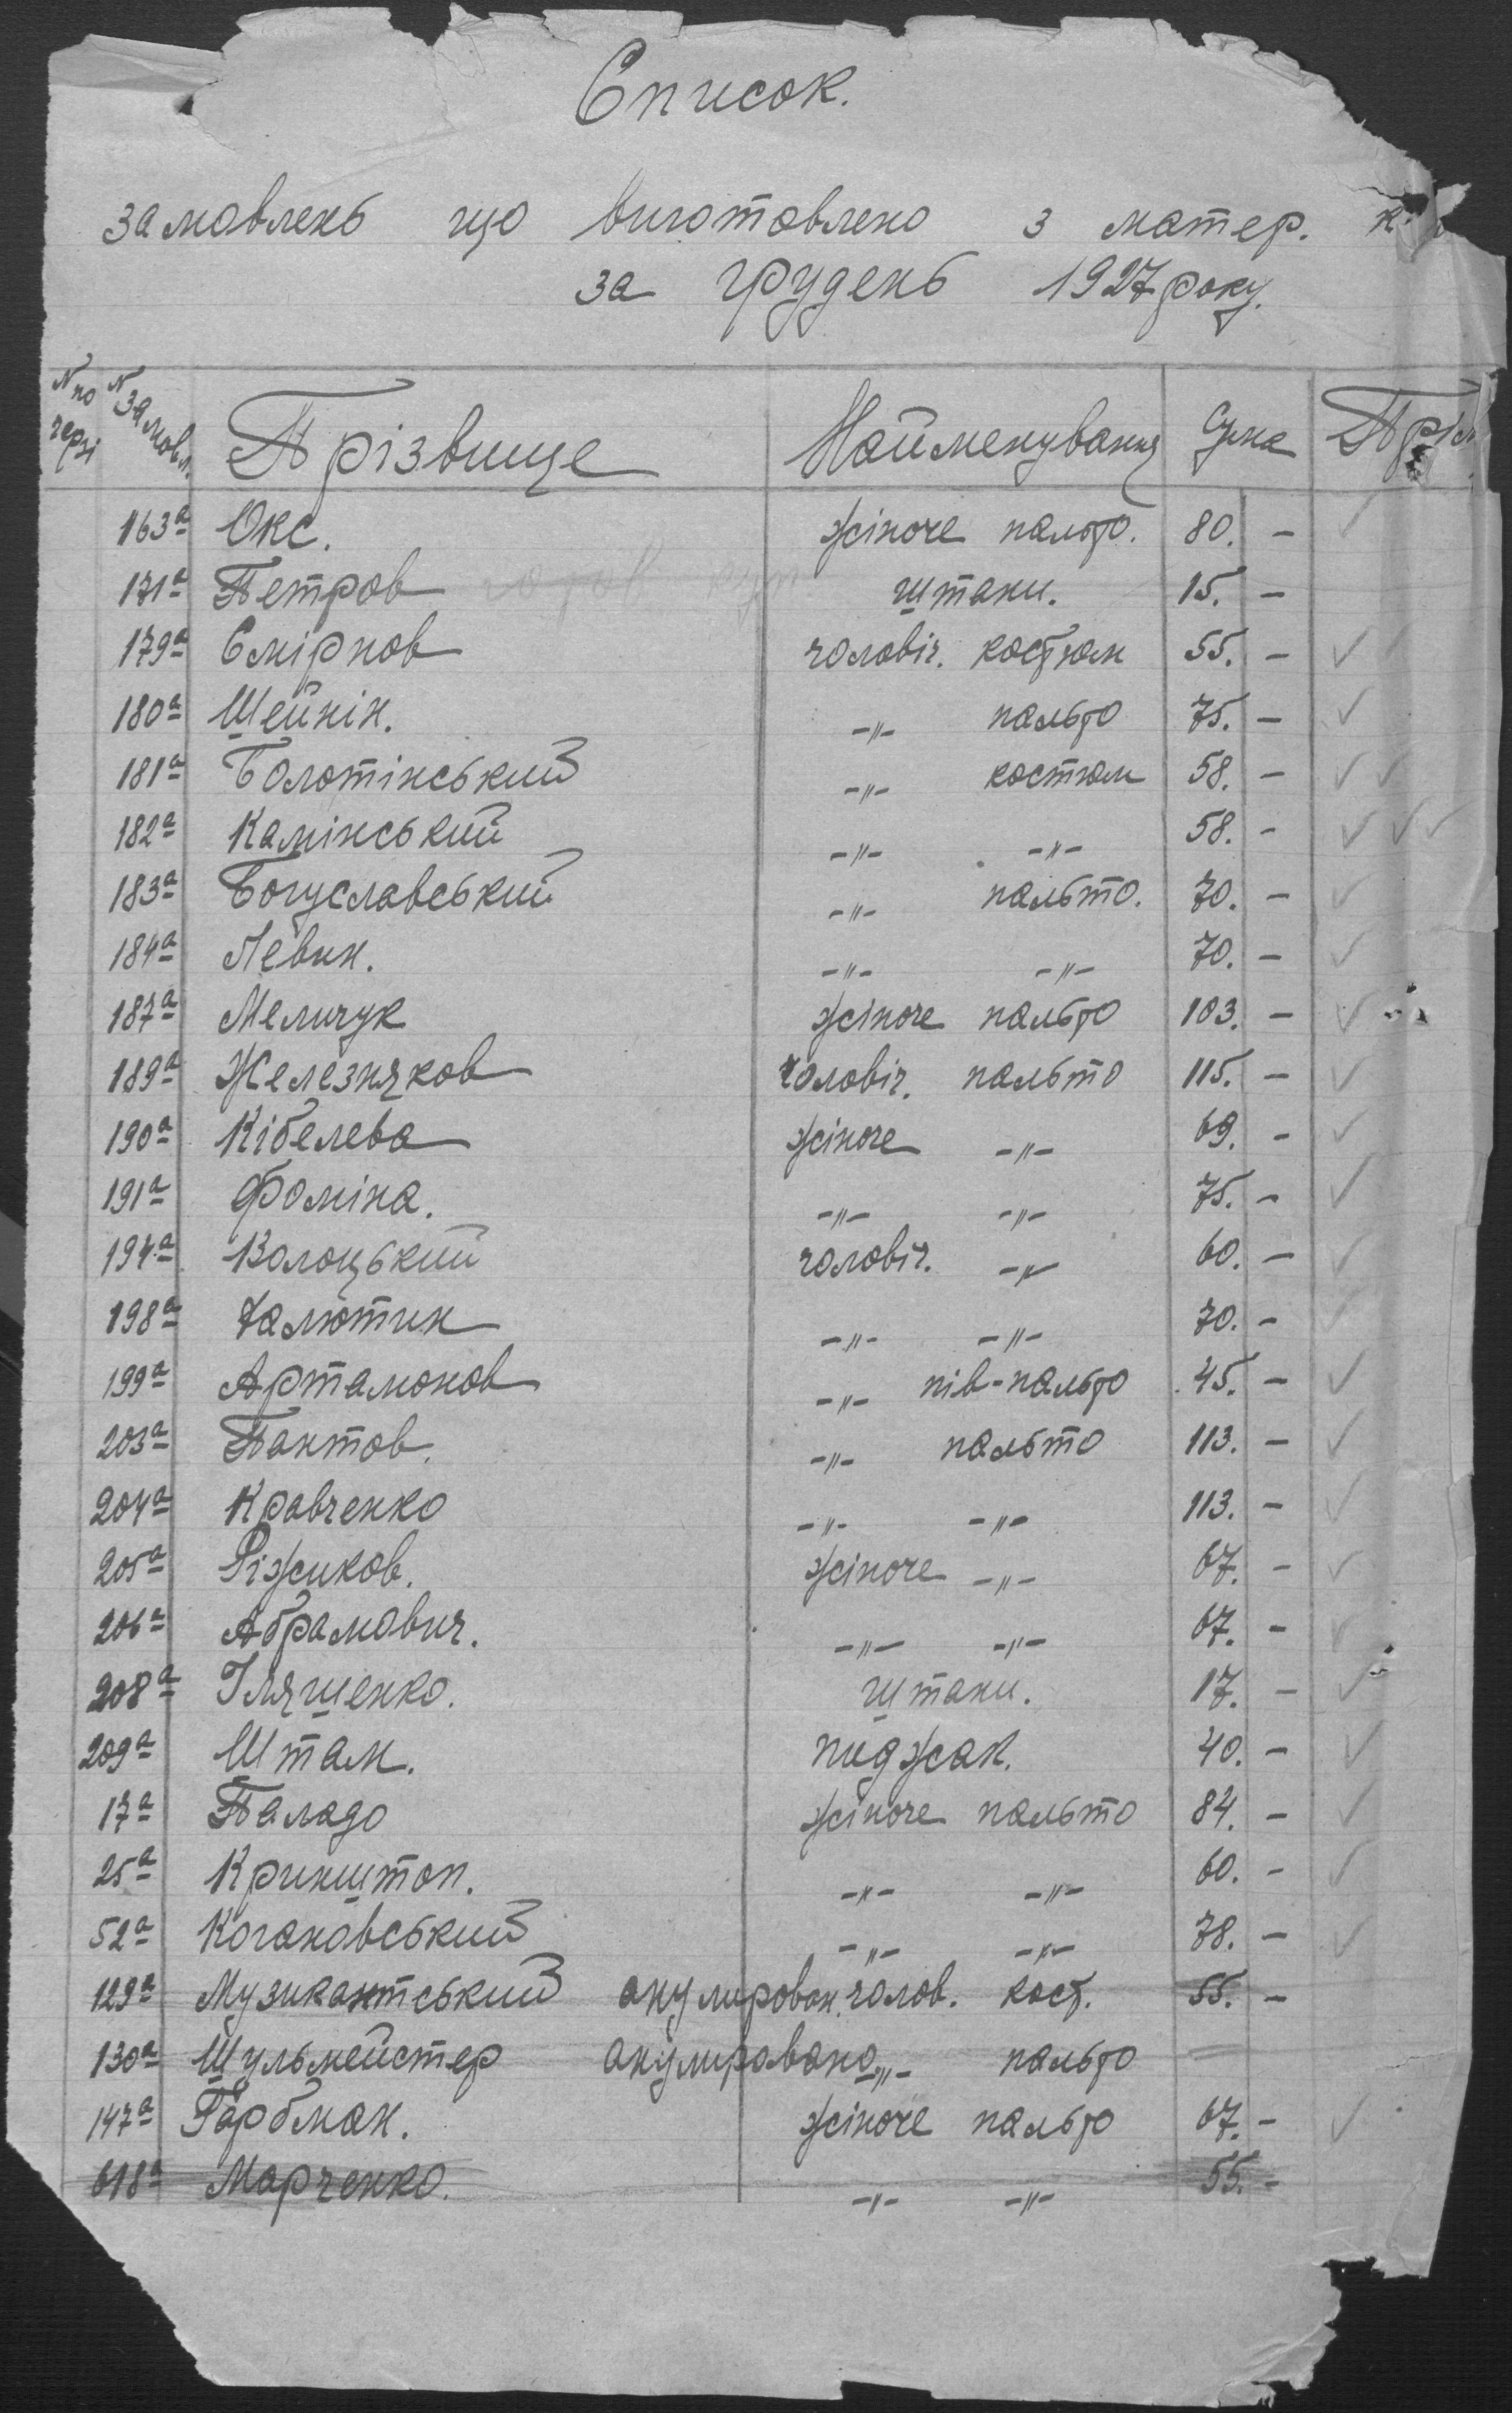 Список.
замовлень що виготовлено з матер.
за грудень 1927 року.
N по черзі N замовл. Прізвище Найменування Сума Прім
163а Окс. жіноче пальто. 80. -
171а Петров штани. 15. -
179а Смірнов чоловіч. костюм 55. -
180а Шейнін. -"- пальто 75. -
181а Болотінський -"- костюм 58. -
182а Камінський -"- -"- 58. -
183а Богуславський -"- пальто. 70. -
184а Левин. -"- -"- 70. -
187а Меличук жіноче пальто 103. -
189а Железняков чоловіч. пальто 115. -
190а Кібелева жіноче -"- 69. -
191а Фоміна. -"- -"- 75. -
194а Волоцький чоловіч. -"- 60. -
198а -"- -"- 70. -
199а Артамонов -"- пів-пальто 45. -
203а Пактов. -"- пальто 113. -
204а Кравченко -"- -"- 113. -
205а Ріжиков. жіноче -"- 67. -
206а Абрамович. -"- -"- 67. -
208а Іляшенко. штани. 17. -
209а Штам. пиджак. 40. -
17а Паладо жіноче пальто 84. -
25а Кринштоп. -"- -"- 60. -
52а Кагановський -"- -"- 78. -
129а Музикантський анулирован. чолов. кост. 55. -
130а Шульмейстер анулировано -"- пальто
147а Гарбман. жіноче пальто 67. -
618а Марченко. -"- -"- 55. -